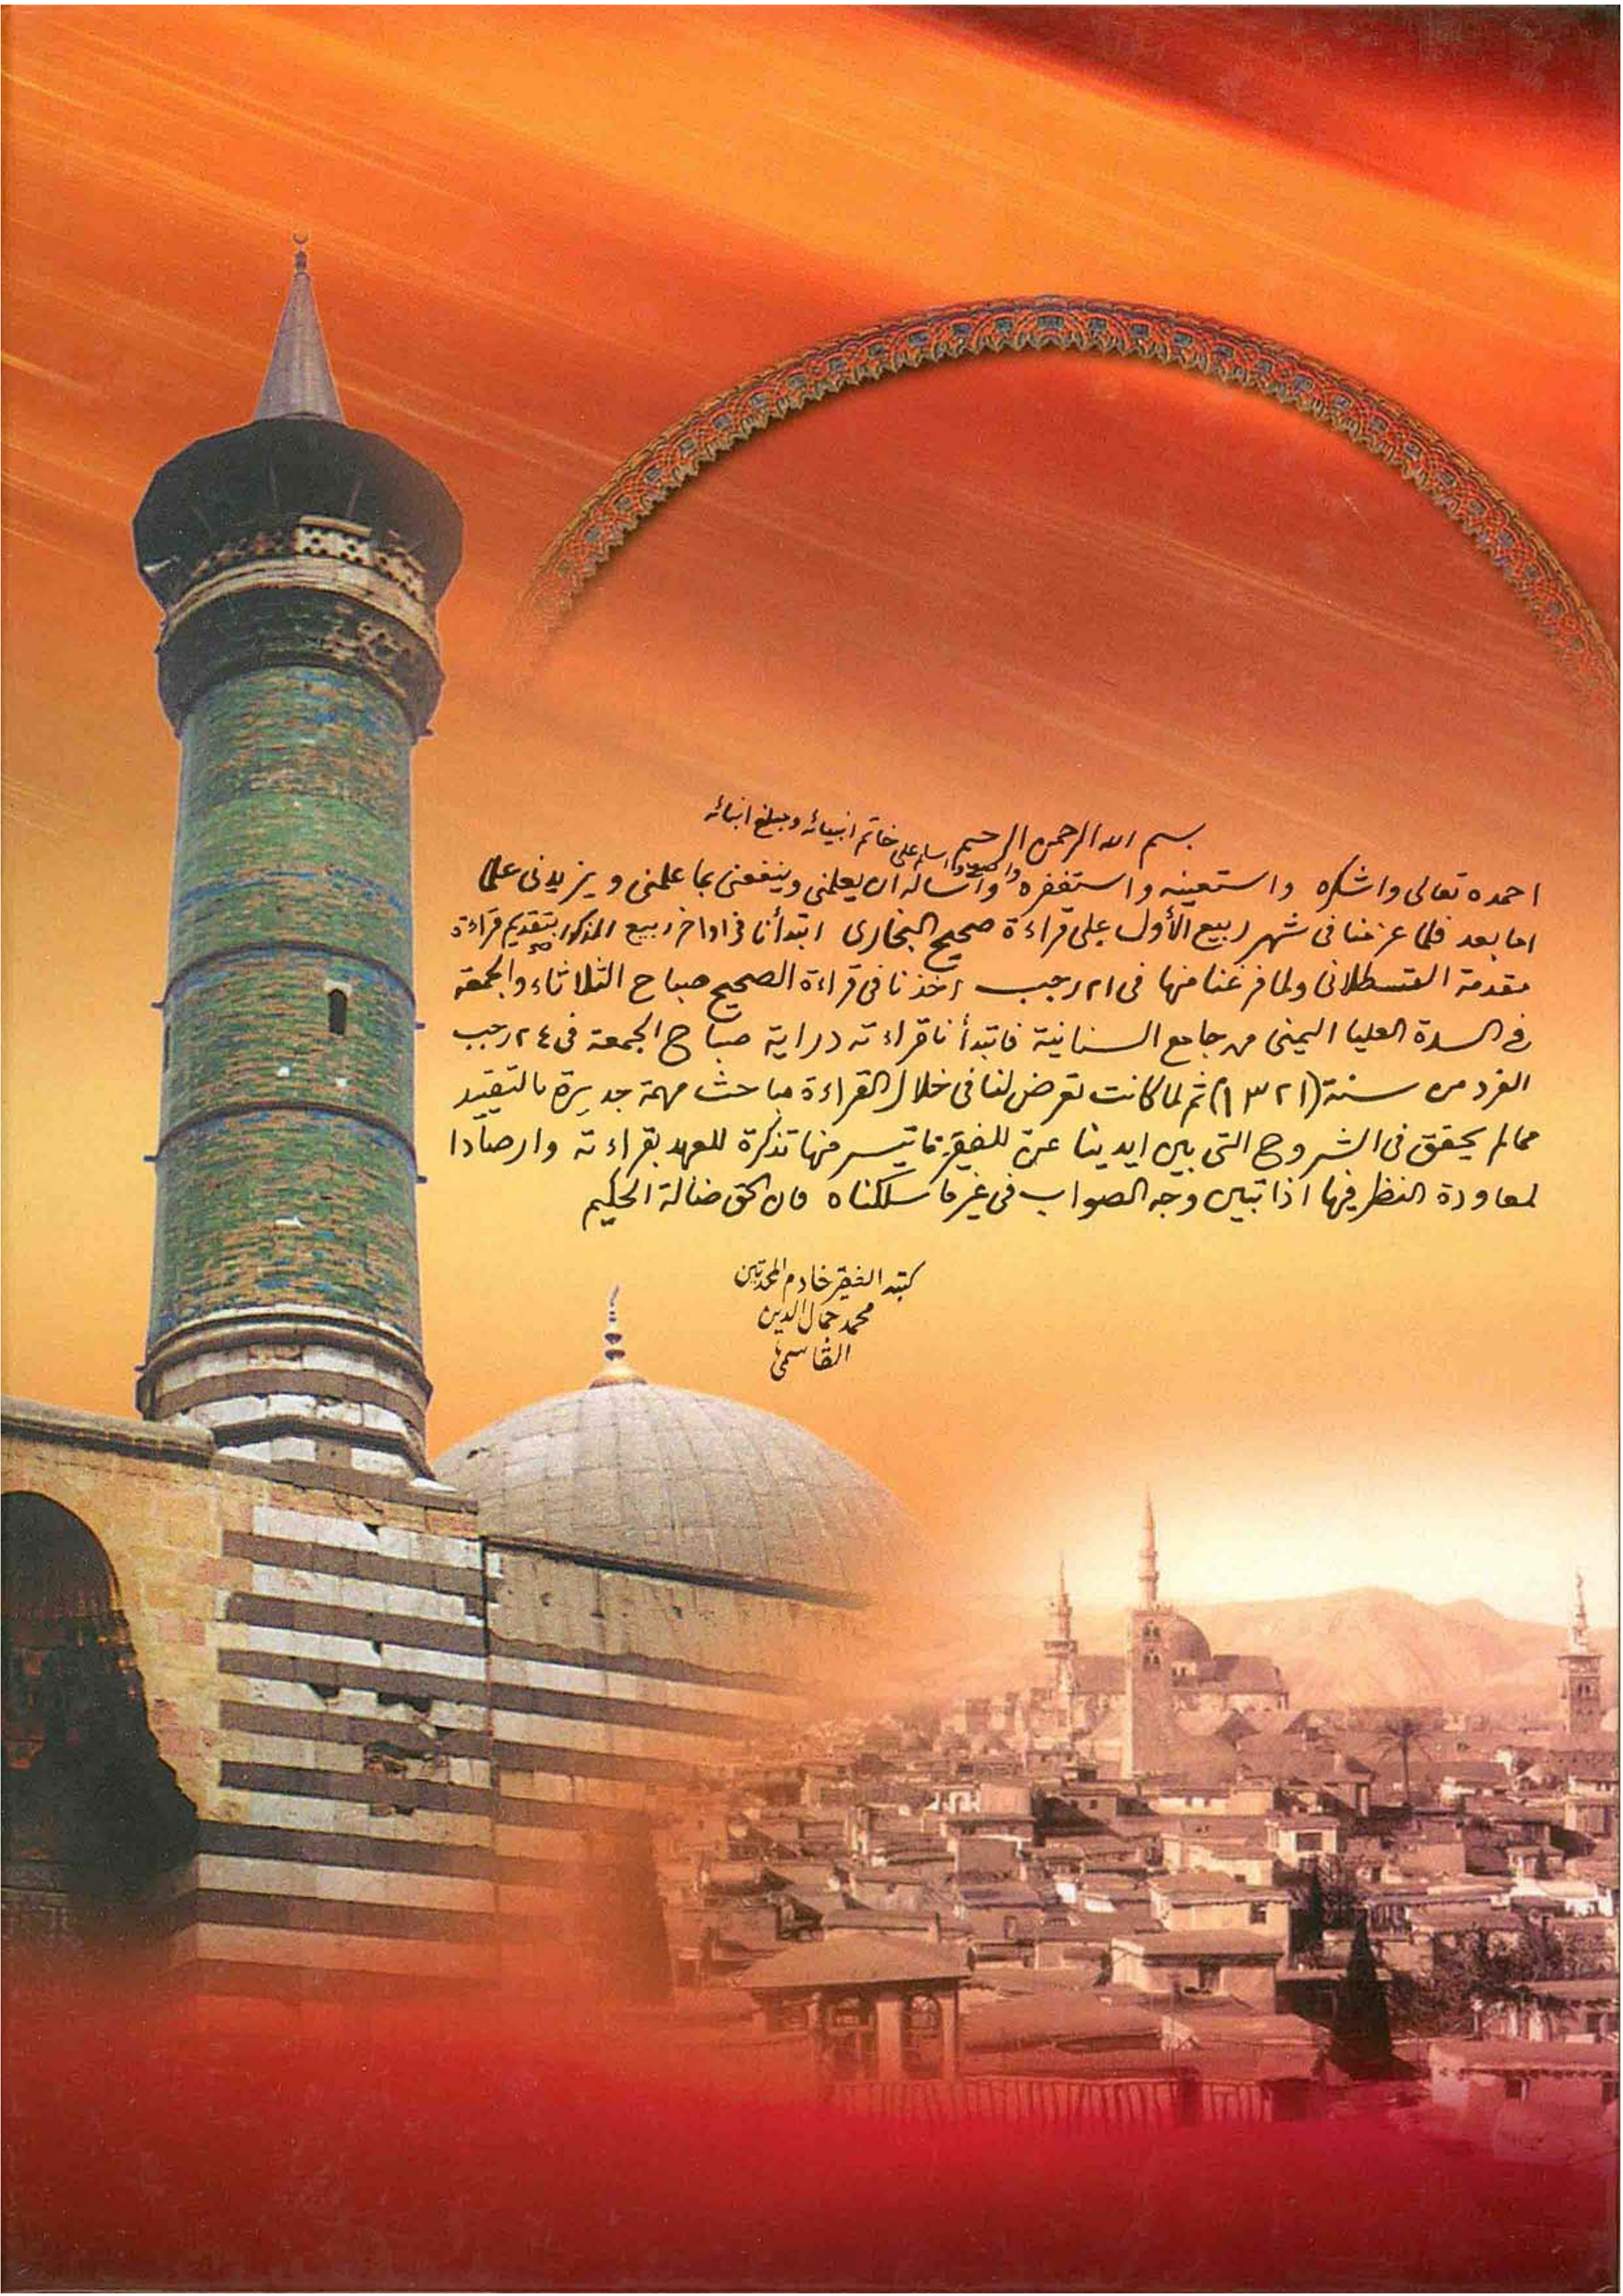 بسم الله الرحمن الرحيم
والصلاة والسلام على خاتم انبيائه ومبلغ انبائه
احمده تعالى واشكره واستعينه واستغفره وأسأله ان يعلمنى وينفعنى بما علمنى ويزيدنى علما
اما بعد فلما عزمنا فى شهر ربيع الأول على قراءة صحيح البخارى ابتدأنا فى اواخر ربيع المذكور بتقديم قراءة
مقدمة القسطلانى ولما فرغنا منها فى ٢١ رجب اخذنا فى قراءة الصحيح صباح الثلاثاء والجمعة
فى السدة العليا اليمنى من جامع السنانية فابتدأنا قراءته دراية صباح الجمعة فى ٢٤ رجب
الفرد من سنة (١٣٢١) ثم لما كانت تعرض لنا فى خلال القراءة مباحث مهمة جديرة بالتقييد
مما لم يحقق فى الشروح التى بين ايدينا عنّ للفقير ما تيسر منها تذكرة للعهد بقراءته وارصادا
لمعاودة النظر فيها اذا تبين وجه الصواب فى غير ما سلكناه فان الحق ضالة الحكيم
كتبه الفقير خادم المحدثين
محمد جمال الدين
القاسمى